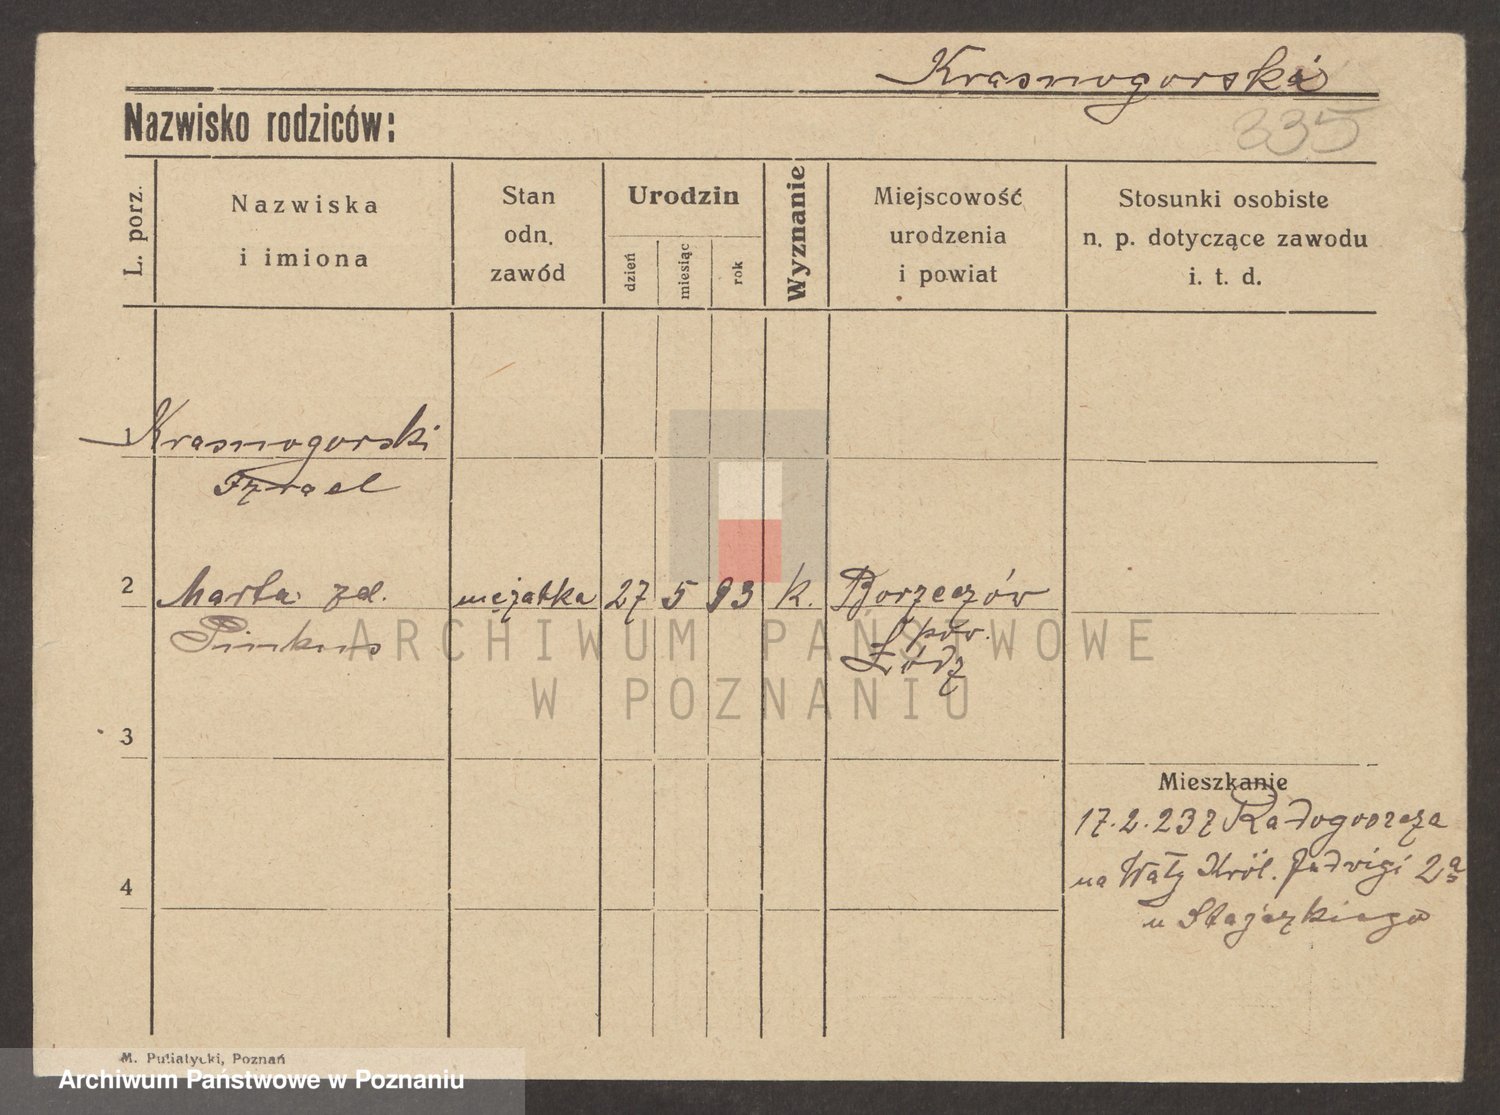 Krasnogorska
Nazwisko rodziców:
335
L. porz.
Nazwiska
i imiona
Stan
odn.
zawód
Urodzin
dzień
miesiąc
rok
Wyznanie
Miejscowość
urodzenia
i powiat
Stosunki osobiste
n. p. dotyczące zawodu
i. t. d.
1 Krasnogorski
Izrael
2 Marta zd. mężatka 27 5 93 k. Borzęczów
Pinkus pow.
Łódź
ARCHIWUM PAŃSTWOWE
W POZNANIU
3
Mieszkanie
17.2.237 Radogoszcza
na Wały Król. Jadwigi 2a
4
u
M. Putiatycki, Poznań
Archiwum Państwowe w Poznaniu